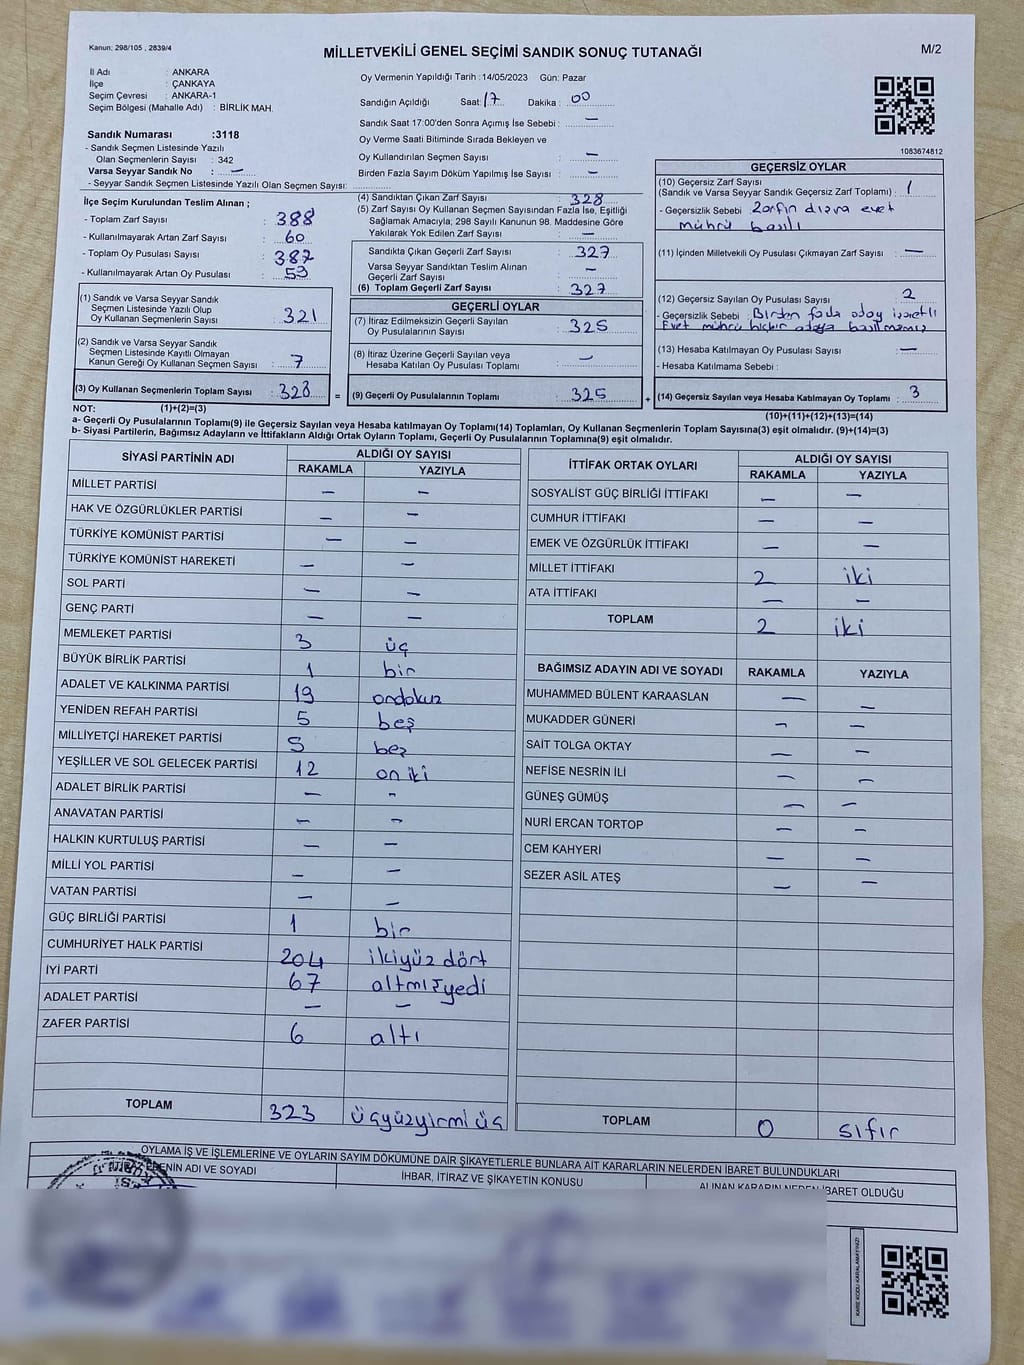 Kanun: 298/105 , 2839/4
MİLLETVEKİLİ GENEL SEÇİMİ SANDIK SONUÇ TUTANAĞI
M/2
İl Adı : ANKARA
İlçe : ÇANKAYA
Seçim Çevresi : ANKARA-1
Seçim Bölgesi (Mahalle Adı) : BİRLİK MAH.
Sandık Numarası :3118
- Sandık Seçmen Listesinde Yazılı
Olan Seçmenlerin Sayısı : 342
Varsa Seyyar Sandık No : —
- Seyyar Sandık Seçmen Listesinde Yazılı Olan Seçmen Sayısı:
Oy Vermenin Yapıldığı Tarih : 14/05/2023 Gün: Pazar
Sandığın Açıldığı Saat: 17 Dakika : 00
Sandık Saat 17:00'den Sonra Açımış İse Sebebi : —
Oy Verme Saati Bitiminde Sırada Bekleyen ve
Oy Kullandırılan Seçmen Sayısı : —
Birden Fazla Sayım Döküm Yapılmış İse Sayısı : —
1083674812
İlçe Seçim Kurulundan Teslim Alınan ;
- Toplam Zarf Sayısı : 388
- Kullanılmayarak Artan Zarf Sayısı : 60
- Toplam Oy Pusulası Sayısı : 387
- Kullanılmayarak Artan Oy Pusulası : 53
(1) Sandık ve Varsa Seyyar Sandık
Seçmen Listesinde Yazılı Olup
Oy Kullanan Seçmenlerin Sayısı : 321
(2) Sandık ve Varsa Seyyar Sandık
Seçmen Listesinde Kayıtlı Olmayan
Kanun Gereği Oy Kullanan Seçmen Sayısı : 7
(3) Oy Kullanan Seçmenlerin Toplam Sayısı : 328 =
(4) Sandıktan Çıkan Zarf Sayısı : 328
(5) Zarf Sayısı Oy Kullanan Seçmen Sayısından Fazla İse, Eşitliği
Sağlamak Amacıyla, 298 Sayılı Kanunun 98. Maddesine Göre
Yakılarak Yok Edilen Zarf Sayısı : —
Sandıkta Çıkan Geçerli Zarf Sayısı : 327
Varsa Seyyar Sandıktan Teslim Alınan
Geçerli Zarf Sayısı : —
(6) Toplam Geçerli Zarf Sayısı : 327
GEÇERLİ OYLAR
(7) İtiraz Edilmeksizin Geçerli Sayılan
Oy Pusulalarının Sayısı : 325
(8) İtiraz Üzerine Geçerli Sayılan veya
Hesaba Katılan Oy Pusulası Toplamı : —
(9) Geçerli Oy Pusulalarının Toplamı : 325 +
GEÇERSİZ OYLAR
(10) Geçersiz Zarf Sayısı
(Sandık ve Varsa Seyyar Sandık Geçersiz Zarf Toplamı) : 1
- Geçersizlik Sebebi : Zarfın dışına evet
mührü basılı
(11) İçinden Milletvekili Oy Pusulası Çıkmayan Zarf Sayısı : —
(12) Geçersiz Sayılan Oy Pusulası Sayısı : 2
- Geçersizlik Sebebi : Birden fazla aday işaretli
Evet mührü hiçbir adaya basılmamış
(13) Hesaba Katılmayan Oy Pusulası Sayısı : —
- Hesaba Katılmama Sebebi :
(14) Geçersiz Sayılan veya Hesaba Katılmayan Oy Toplamı : 3
NOT: (1)+(2)=(3)
(10)+(11)+(12)+(13)=(14)
a- Geçerli Oy Pusulalarının Toplamı(9) ile Geçersiz Sayılan veya Hesaba katılmayan Oy Toplamı(14) Toplamları, Oy Kullanan Seçmenlerin Toplam Sayısına(3) eşit olmalıdır. (9)+(14)=(3)
b- Siyasi Partilerin, Bağımsız Adayların ve İttifakların Aldığı Ortak Oyların Toplamı, Geçerli Oy Pusulalarının Toplamına(9) eşit olmalıdır.
SİYASİ PARTİNİN ADI ALDIĞI OY SAYISI
RAKAMLA YAZIYLA
MİLLET PARTİSİ — —
HAK VE ÖZGÜRLÜKLER PARTİSİ — —
TÜRKİYE KOMÜNİST PARTİSİ — —
TÜRKİYE KOMÜNİST HAREKETİ — —
SOL PARTİ — —
GENÇ PARTİ — —
MEMLEKET PARTİSİ 3 üç
BÜYÜK BİRLİK PARTİSİ 1 bir
ADALET VE KALKINMA PARTİSİ 19 ondokuz
YENİDEN REFAH PARTİSİ 5 beş
MİLLİYETÇİ HAREKET PARTİSİ 5 beş
YEŞİLLER VE SOL GELECEK PARTİSİ 12 on iki
ADALET BİRLİK PARTİSİ — —
ANAVATAN PARTİSİ — —
HALKIN KURTULUŞ PARTİSİ — —
MİLLİ YOL PARTİSİ — —
VATAN PARTİSİ — —
GÜÇ BİRLİĞİ PARTİSİ 1 bir
CUMHURİYET HALK PARTİSİ 204 ikiyüz dört
İYİ PARTİ 67 altmışyedi
ADALET PARTİSİ — —
ZAFER PARTİSİ 6 altı
TOPLAM 323 üçyüzyirmi üç
İTTİFAK ORTAK OYLARI ALDIĞI OY SAYISI
RAKAMLA YAZIYLA
SOSYALİST GÜÇ BİRLİĞİ İTTİFAKI — —
CUMHUR İTTİFAKI — —
EMEK VE ÖZGÜRLÜK İTTİFAKI — —
MİLLET İTTİFAKI 2 iki
ATA İTTİFAKI — —
TOPLAM 2 iki
BAĞIMSIZ ADAYIN ADI VE SOYADI RAKAMLA YAZIYLA
MUHAMMED BÜLENT KARAASLAN — —
MUKADDER GÜNERİ — —
SAİT TOLGA OKTAY — —
NEFİSE NESRİN İLİ — —
GÜNEŞ GÜMÜŞ — —
NURİ ERCAN TORTOP — —
CEM KAHYERİ — —
SEZER ASİL ATEŞ — —
TOPLAM 0 sıfır
OYLAMA İŞ VE İŞLEMLERİNE VE OYLARIN SAYIM DÖKÜMÜNE DAİR ŞİKAYETLERLE BUNLARA AİT KARARLARIN NELERDEN İBARET BULUNDUKLARI
ADI VE SOYADI
İHBAR, İTİRAZ VE ŞİKAYETİN KONUSU
ALINAN KARARIN NEDEN İBARET OLDUĞU